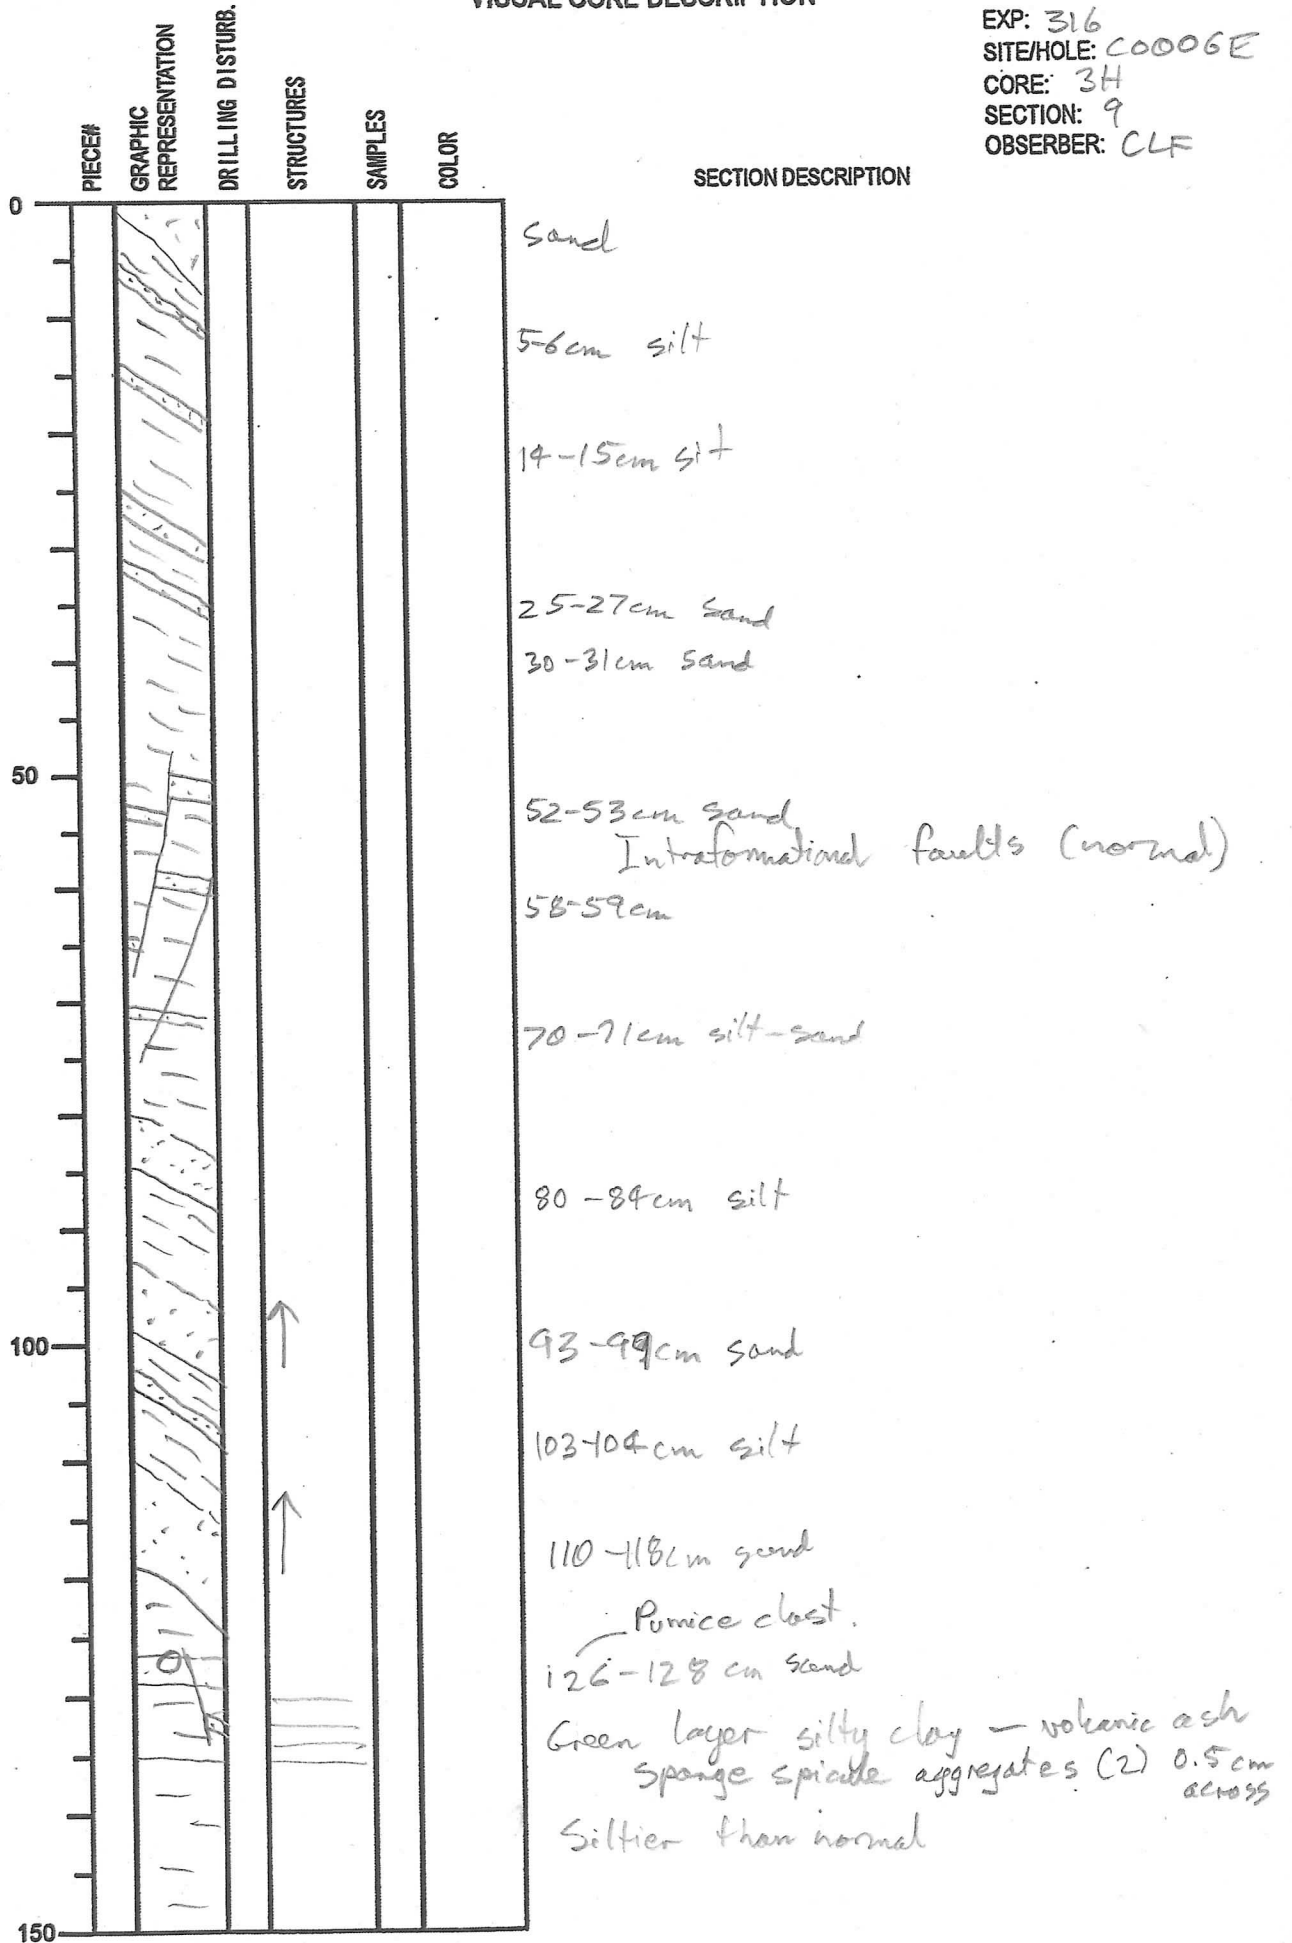 VISUAL CORE DESCRIPTION
EXP: 316
SITE/HOLE: C0006E
CORE: 3H
SECTION: 9
OBSERBER: CLF
PIECE#
GRAPHIC REPRESENTATION
DRILLING DISTURB.
STRUCTURES
SAMPLES
COLOR
SECTION DESCRIPTION
0
Sand
5-6cm silt
14-15cm sit
25-27cm Sand
30-31cm Sand
50
52-53cm sand
Intraformational faults (normal)
58-59cm
70-71cm silt-sand
80-84cm silt
100
93-99cm sand
103-104cm silt
110-118cm sand
Pumice clast.
126-128 cm sand
Green layer silty clay — volcanic ash
Sponge spicule aggregates (2) 0.5cm
across
Siltier than normal
150